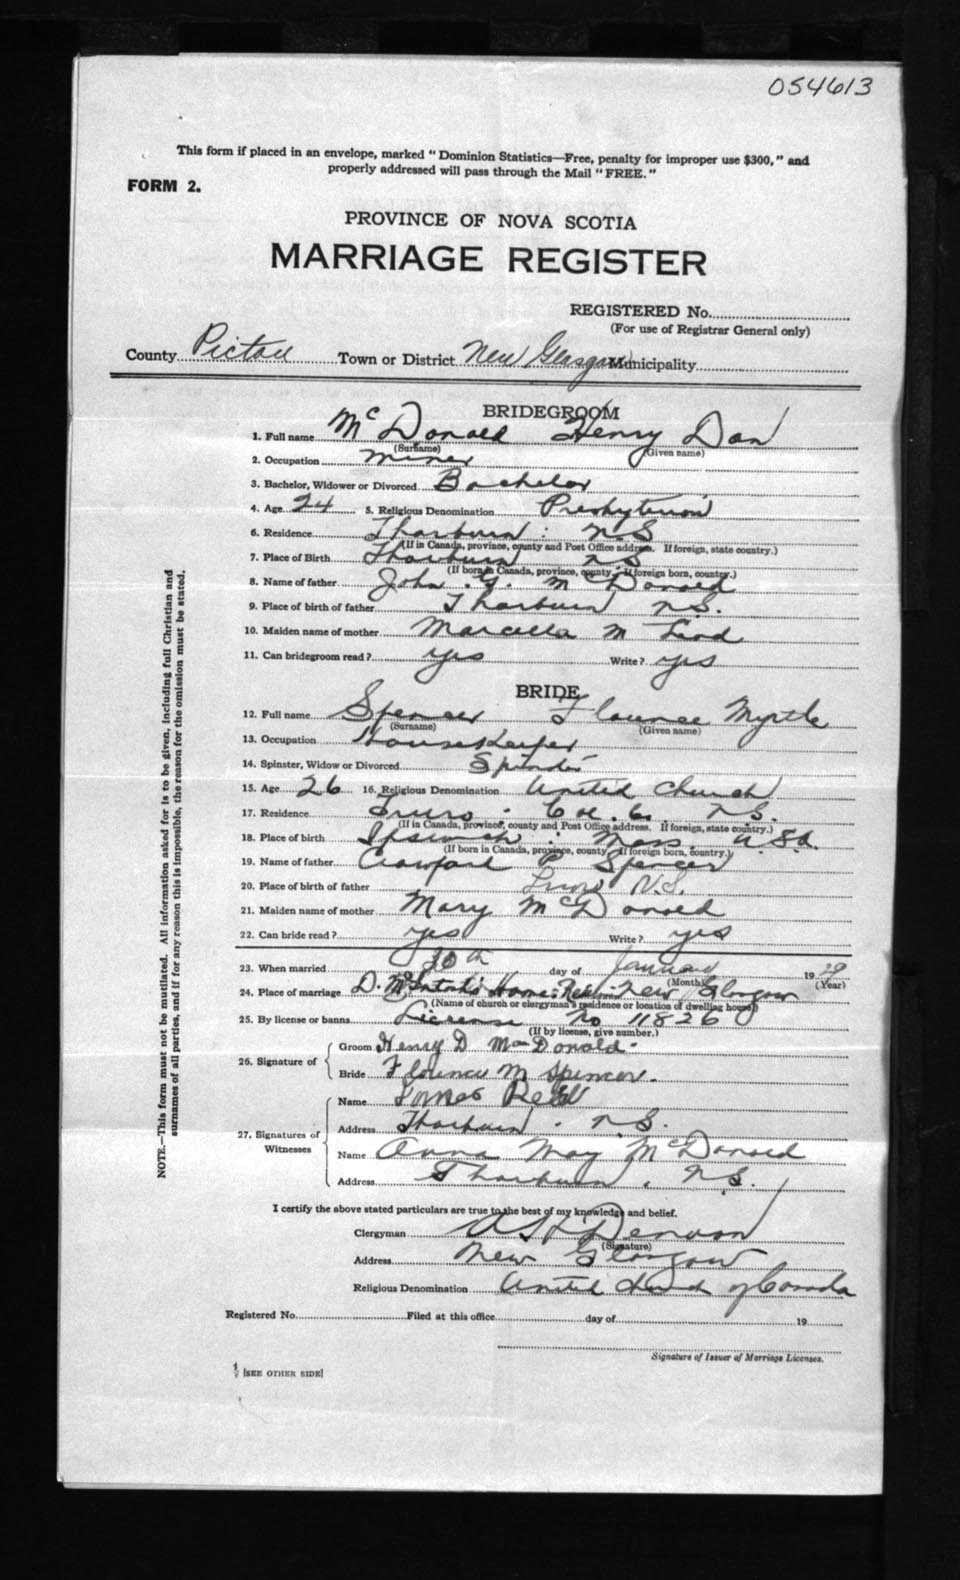 054613
This form if placed in an envelope, marked "Dominion Statistics—Free, penalty for improper use $300," and
properly addressed will pass through the Mail "FREE."
FORM 2.
PROVINCE OF NOVA SCOTIA
MARRIAGE REGISTER
REGISTERED No.
(For use of Registrar General only)
County Pictou Town or District New Glasgow Municipality
BRIDEGROOM
1. Full name McDonald Henry Dan
(Surname) (Given name)
2. Occupation miner
3. Bachelor, Widower or Divorced Bachelor
4. Age 24 5. Religious Denomination Presbyterian
6. Residence Thorburn . N.S
(If in Canada, province, county and Post Office address. If foreign, state country.)
7. Place of Birth Thorburn NS
(If born in Canada, province, county. If foreign born, country.)
8. Name of father John . G. McDonald
9. Place of birth of father Thorburn N.S.
10. Maiden name of mother Marcella McLeod
11. Can bridegroom read? yes Write? yes
BRIDE
12. Full name Spencer Florence Myrtle
(Surname) (Given name)
13. Occupation HouseKeeper
14. Spinster, Widow or Divorced Spinster
15. Age 26 16. Religious Denomination United Church
17. Residence Truro . Col. Co. N.S.
(If in Canada, province, county and Post Office address. If foreign, state country.)
18. Place of birth Ipswich . Mass. U.S.A.
(If born in Canada, province, county. If foreign born, country.)
19. Name of father Crawford P Spencer
20. Place of birth of father Truro N.S.
21. Maiden name of mother Mary McDonald
22. Can bride read? yes Write? yes
23. When married 30th day of January 1929
(Month) (Year)
24. Place of marriage D. McIntosh's Home: New Glasgow
(Name of church or clergyman's residence or location of dwelling house)
25. By license or banns License No 11826
(If by license, give number.)
26. Signature of
Groom Henry D MacDonald.
Bride Florence M Spencer.
27. Signatures of
Witnesses
Name James Reid
Address Thorburn . N.S.
Name Anna May McDonald
Address Thorburn . N.S.
I certify the above stated particulars are true to the best of my knowledge and belief.
Clergyman
(Signature)
Address New Glasgow
Religious Denomination United Church of Canada
Registered No. Filed at this office day of 19
Signature of Issuer of Marriage Licenses.
[SEE OTHER SIDE]
NOTE.—This form must not be mutilated. All information asked for is to be given, including full Christian and
surnames of all parties, and if for any reason this is impossible, the reason for the omission must be stated.